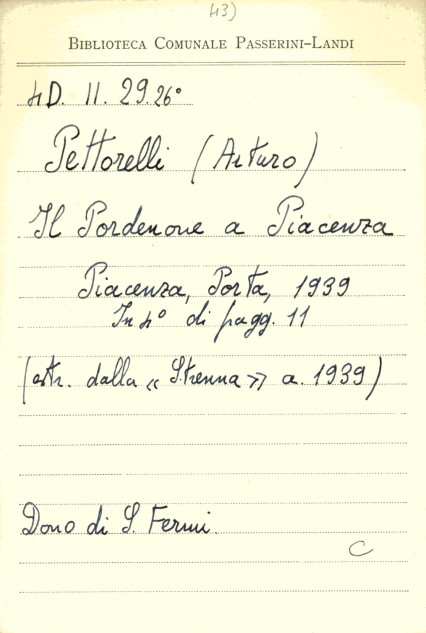 43)
BIBLIOTECA COMUNALE PASSERINI-LANDI
4D. 11. 29.26°
Pettorelli (Arturo)
Il Pordenone a Piacenza
Piacenza, Porta, 1939
In 4° di pagg. 11
(estr. dalla « Strenna » a. 1939)
Dono di S. Fermi.
C